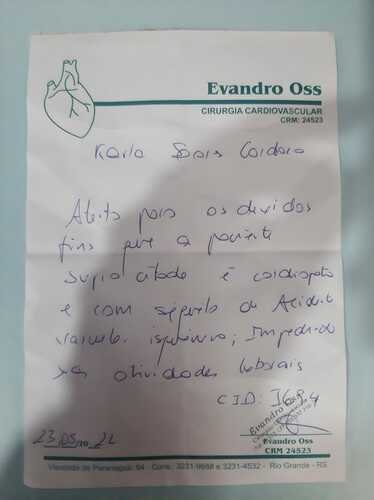 Evandro Oss
CIRURGIA CARDIOVASCULAR
CRM: 24523
Karla
Atesto para os devidos
fins que a paciente
supra citada é cardiopata
e com sequela de Acidente
vascular isquêmico; Impedindo
atividades laborais
CID: I69.4
Evandro Oss
23.05.22
Evandro Oss
CRM 24523
Visconde de Paranaguá, 94 - Cons.: 3231-9688 e 3231-4532 - Rio Grande - RS